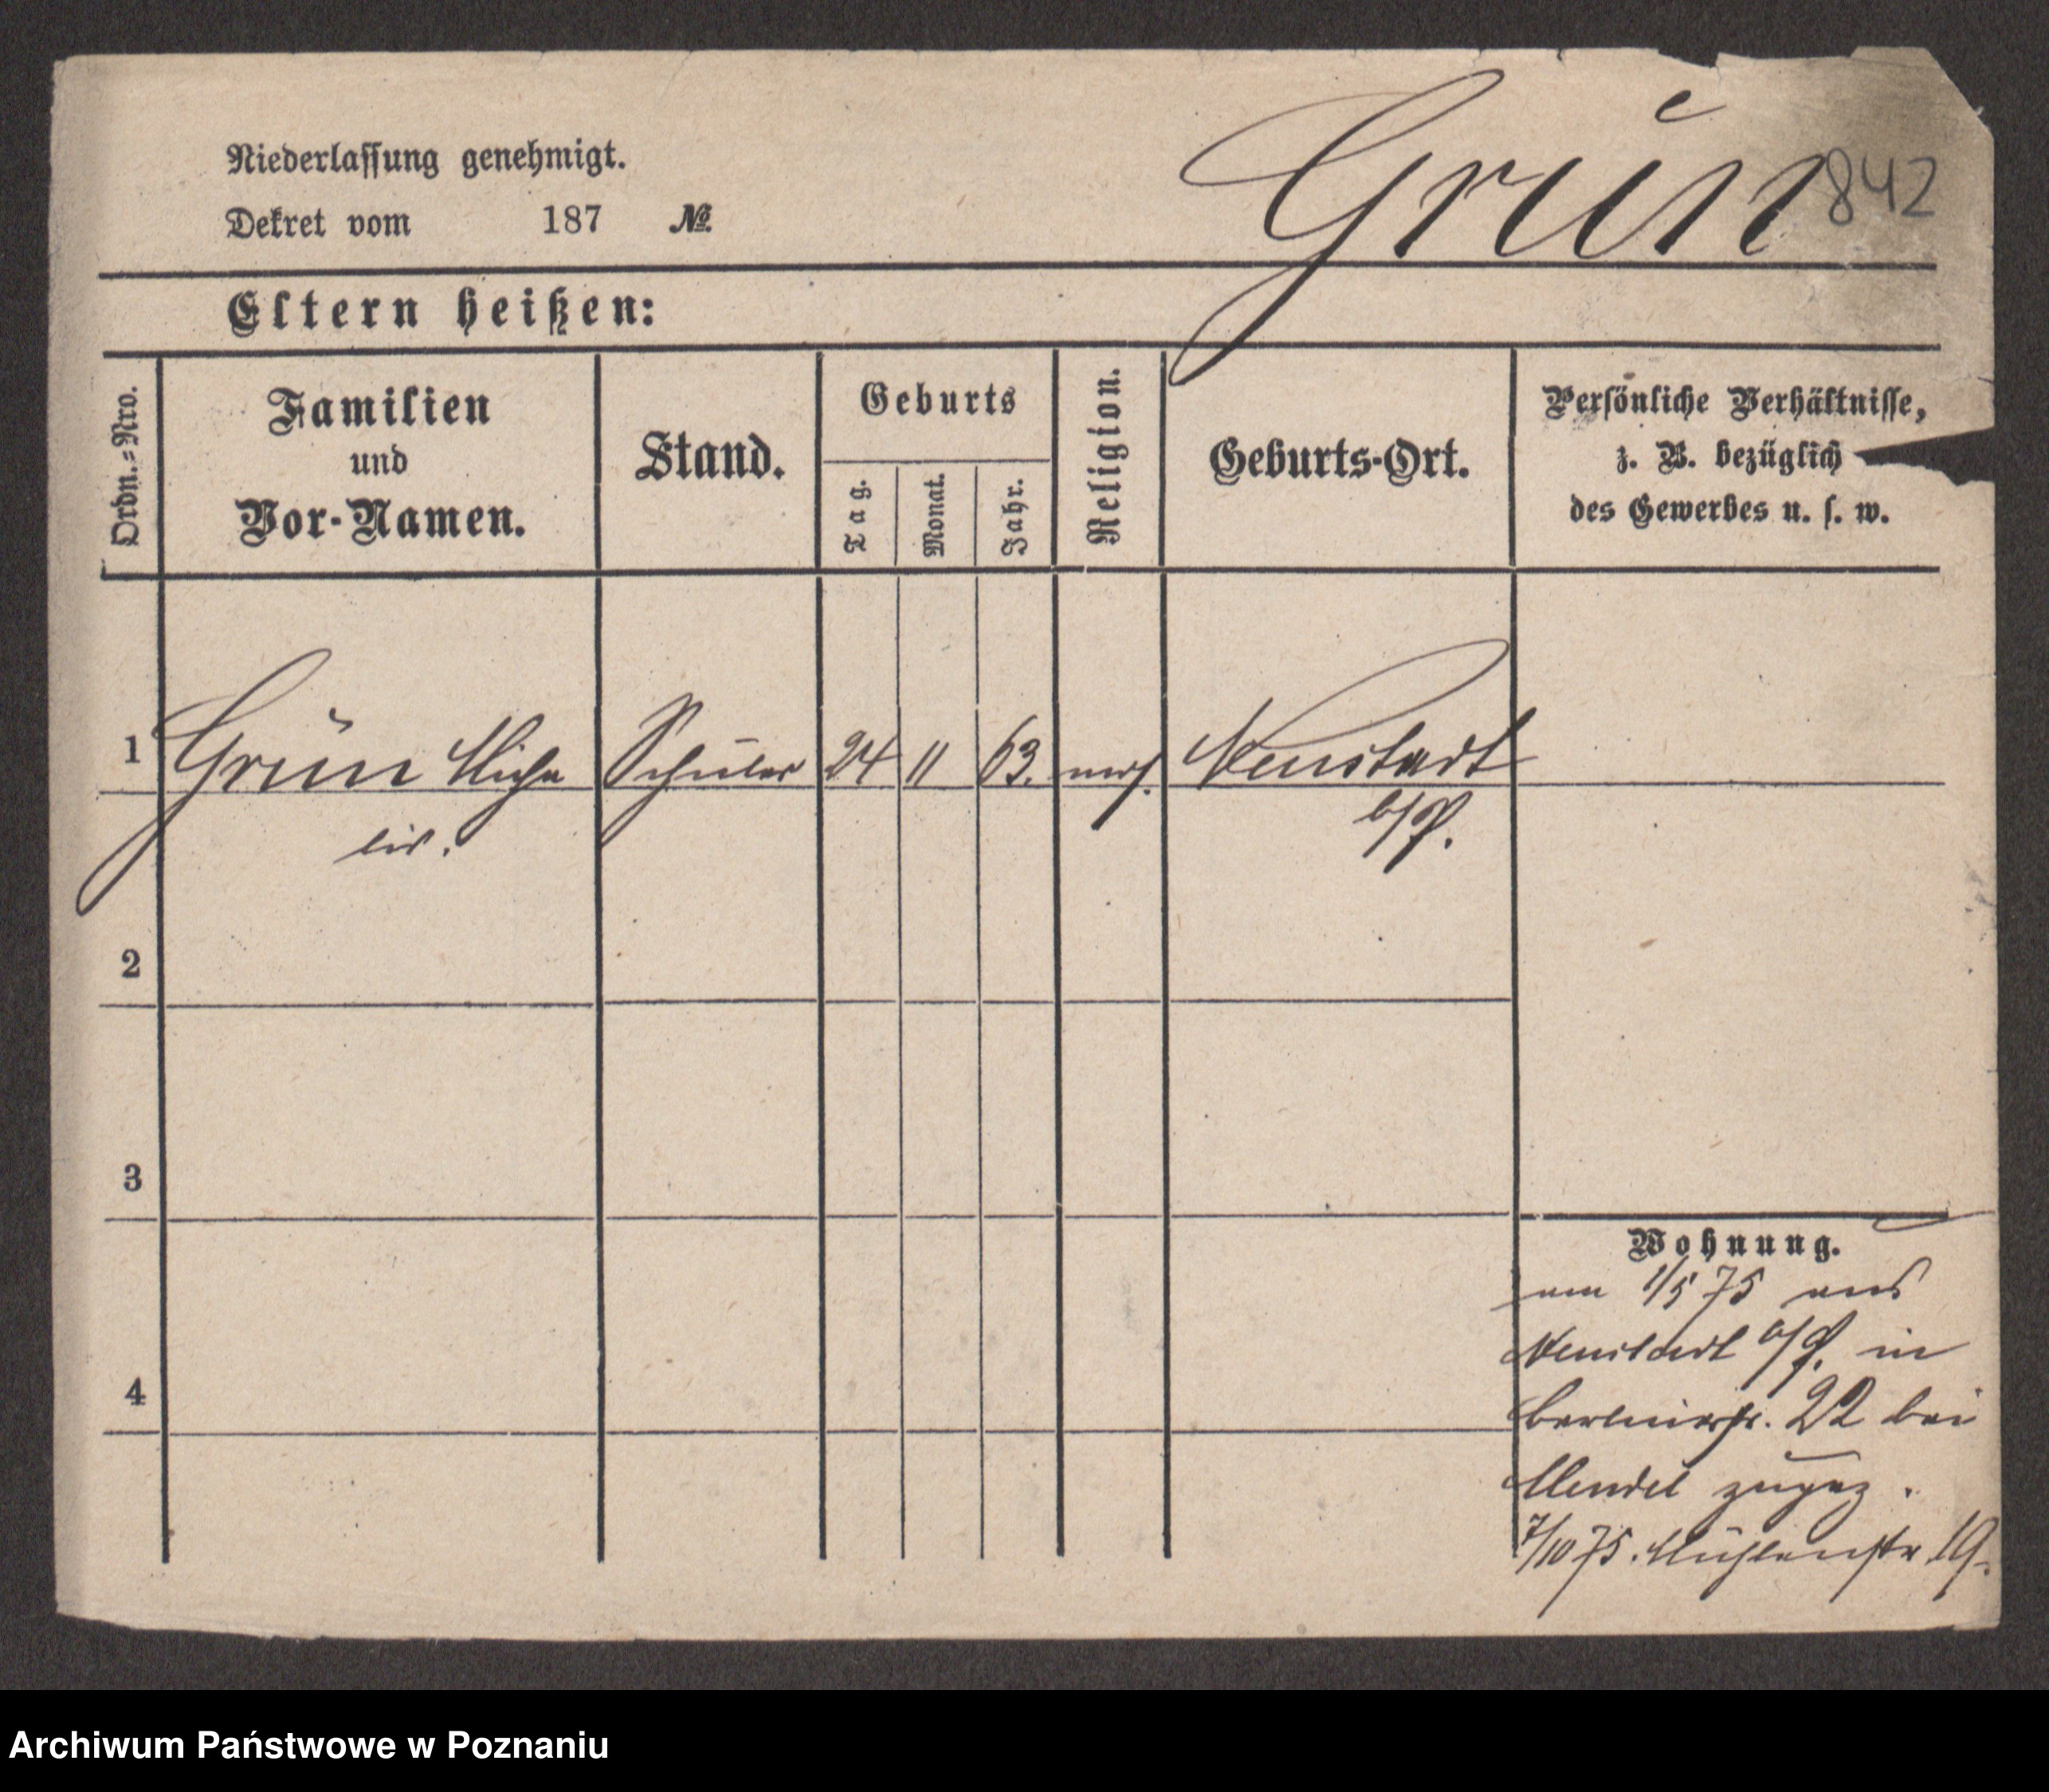 Niederlassung genehmigt.
Grün 842
Dekret vom 187 №
Eltern heißen:
Ordn.=Nro.
Familien
und
Vor-Namen.
Stand.
Geburts
Tag.
Monat.
Jahr.
Religion.
Geburts-Ort.
Persönliche Verhältnisse,
z. B. bezüglich
des Gewerbes u. s. w.
1 Grün Micha Schüler 24 11 63. Neustadt
b/P.
2
3
4
Wohnung.
am 1/5 75 aus
Neustadt b/P. in
Berlinerstr. 22 bei
Mendel zugez.
7/10 75. Mühlenstr 19.
Archiwum Państwowe w Poznaniu